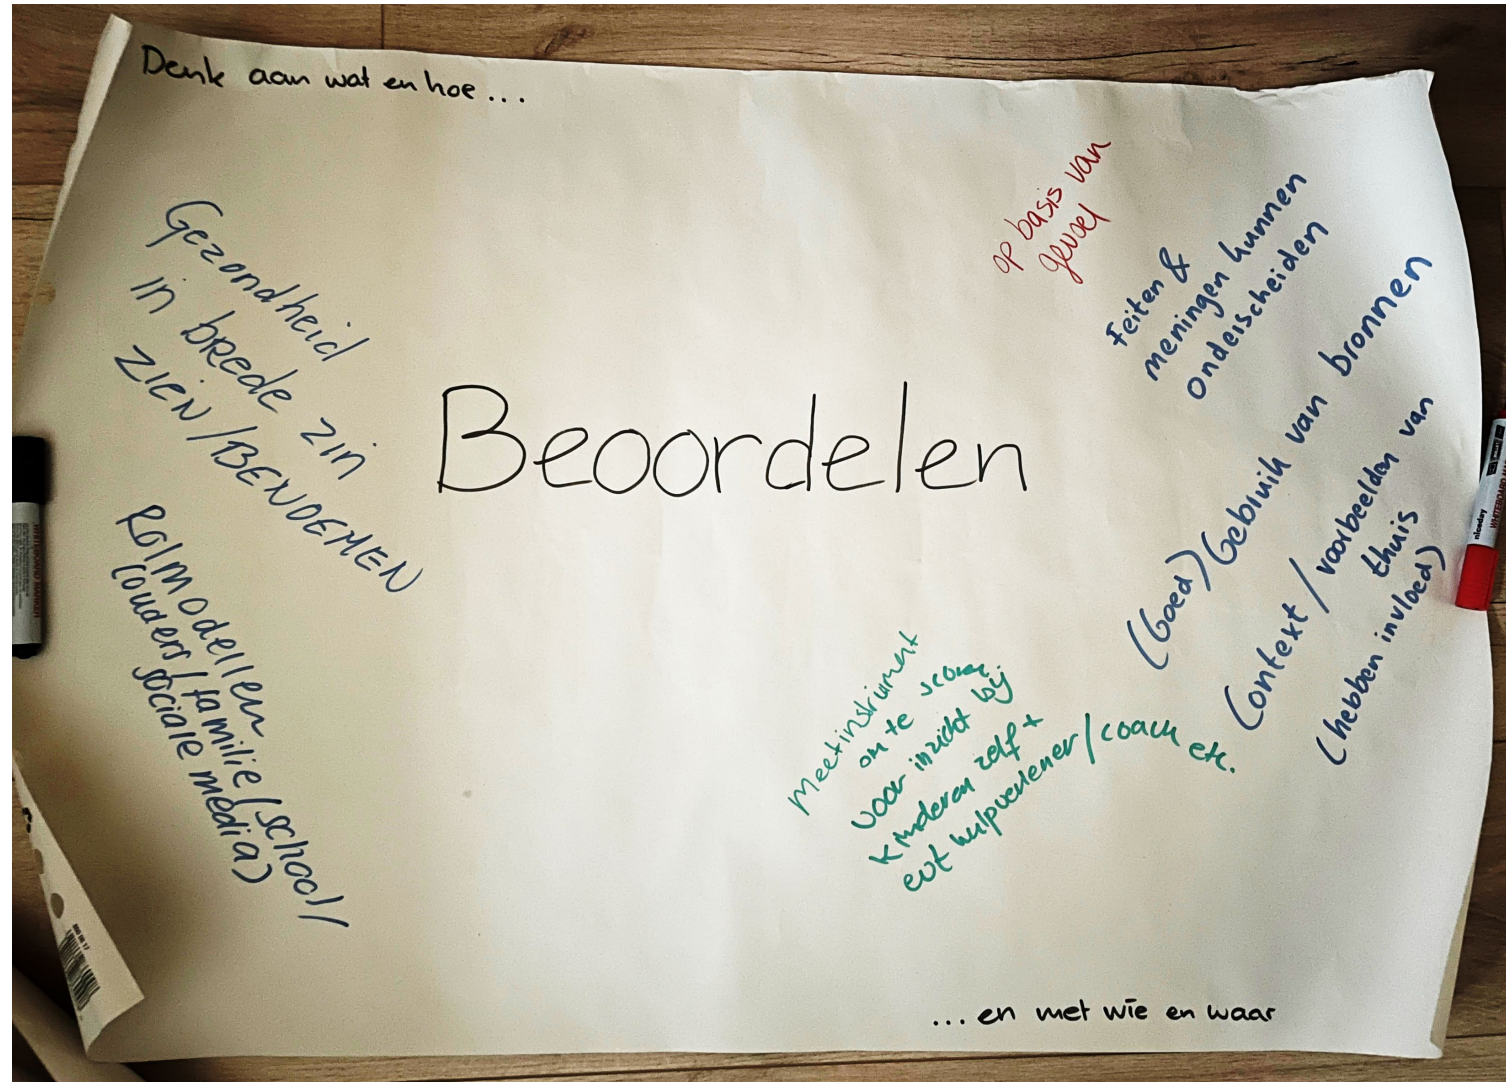 Denk aan wat en hoe ...
Gezondheid
in brede zin
zien/BENOEMEN
Rolmodellen
(ouders/familie/school/
sociale media)
Beoordelen
op basis van
gevoel
Feiten &
meningen kunnen
onderscheiden
(Goed) Gebruik van bronnen
Context/voorbeelden van
thuis
(hebben invloed)
Meetinstrument
om te scoren
voor inzicht bij
kinderen zelf +
evt hulpverlener/coach etc.
... en met wie en waar
niceday
WHITEBOARD